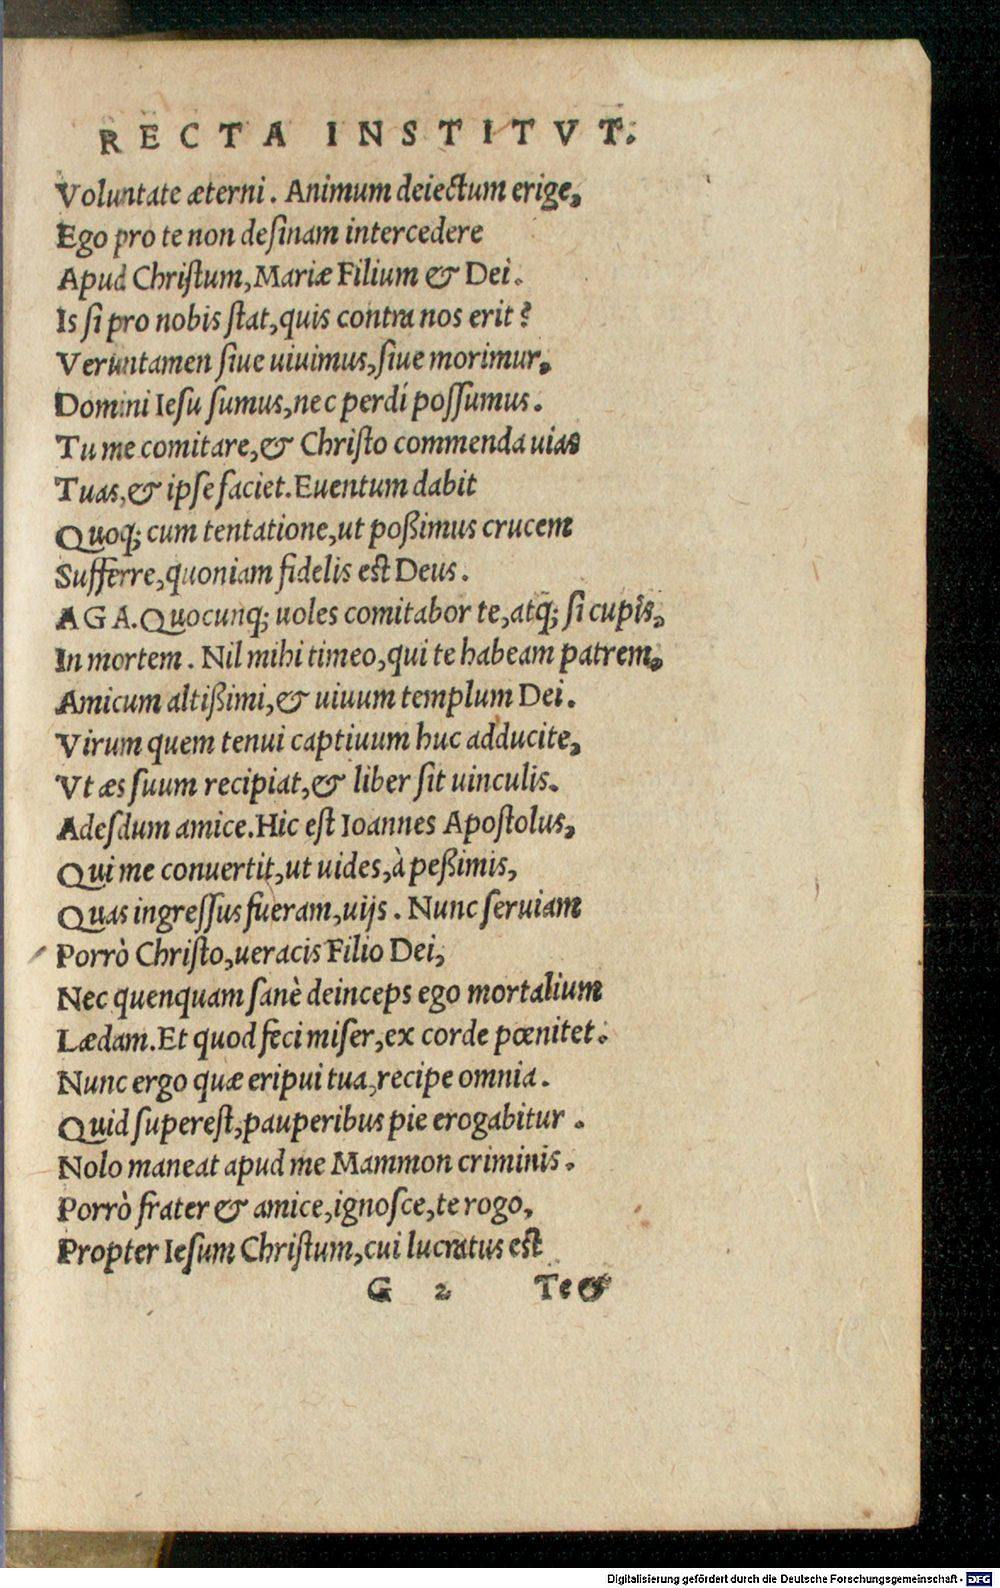 RECTA INSTITVT.
Voluntate æterni. Animum deiectum erige,
Ego pro te non deſinam intercedere
Apud Chriſtum, Mariæ Filium & Dei.
Is ſi pro nobis ſtat, quis contra nos erit?
Veruntamen ſiue uiuimus, ſiue morimur,
Domini Ieſu ſumus, nec perdi poſſumus.
Tu me comitare, & Chriſto commenda uias
Tuas, & ipſe faciet. Euentum dabit
Quoq; cum tentatione, ut poßimus crucem
Sufferre, quoniam fidelis est Deus.
AGA. Quocunq; uoles comitabor te, atq; ſi cupis,
In mortem. Nil mihi timeo, qui te habeam patrem,
Amicum altißimi, & uiuum templum Dei.
Virum quem tenui captiuum huc adducite,
Vt æs ſuum recipiat, & liber ſit uinculis.
Adeſdum amice. Hic eſt Ioannes Apoſtolus,
Qui me conuertit, ut uides, à peßimis,
Quas ingreſſus fueram, uijs. Nunc ſeruiam
Porrò Chriſto, ueracis Filio Dei,
Nec quenquam ſanè deinceps ego mortalium
Lædam. Et quod feci miſer, ex corde pœnitet.
Nunc ergo quæ eripui tua, recipe omnia.
Quid ſupereſt, pauperibus pie erogabitur.
Nolo maneat apud me Mammon criminis.
Porrò frater & amice, ignoſce, te rogo,
Propter Ieſum Chriſtum, cui lucratus est
G 2 Te &
Digitalisierung gefördert durch die Deutsche Forschungsgemeinschaft - DFG